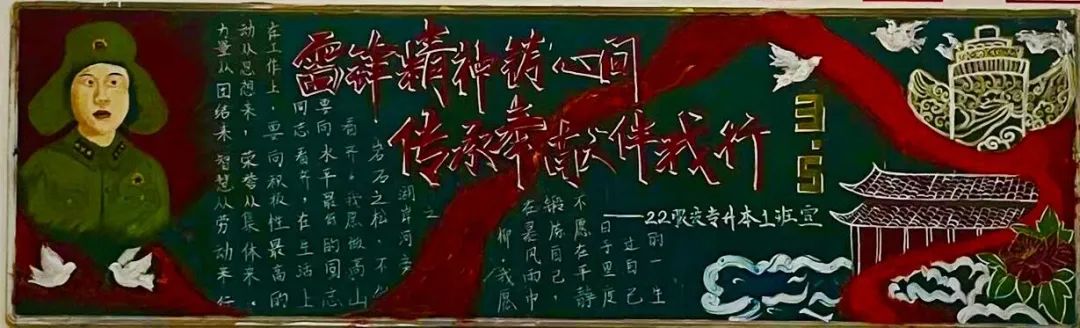 雷锋精神铸心间
传承奉献伴我行
3.5
力量从团结来,智慧从劳动来,行
动从思想来,荣誉从集体来。
在工作上,要向积极性最高的
同志看齐,在生活上
要向水平最低的同志
看齐。我愿做高山
岩石之松,不做
湖岸河旁
之
柳,我愿
在暴风雨中
锻炼自己,
不愿在平静
日子里度
过自己
的一生
专升本1班宣